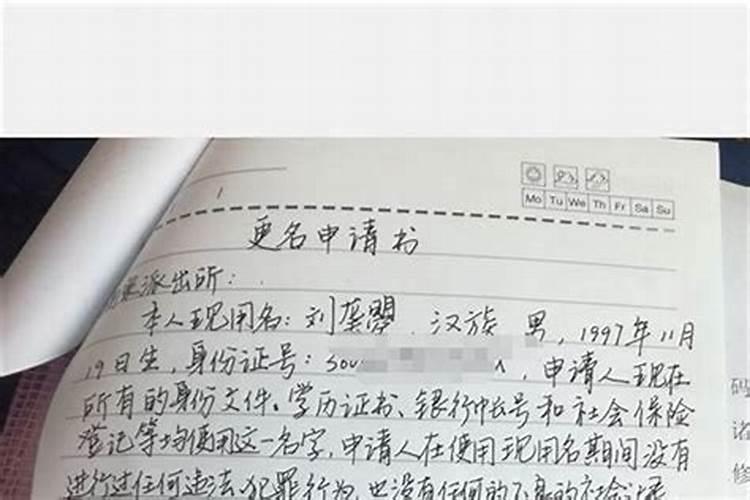 Mo Tu We Th Fr Sa Su
更名申请书
派出所:
本人现用名:刘龑曌,汉族 男,1997年11月
19日生,身份证号:500,申请人现在
所有的身份文件、学历证书、银行帐号和社会保险
登记等均使用这一名字,申请人在使用现用名期间没有
进行过任何违法犯罪行为,也没有任何的不良的社会记录
码
诺
修